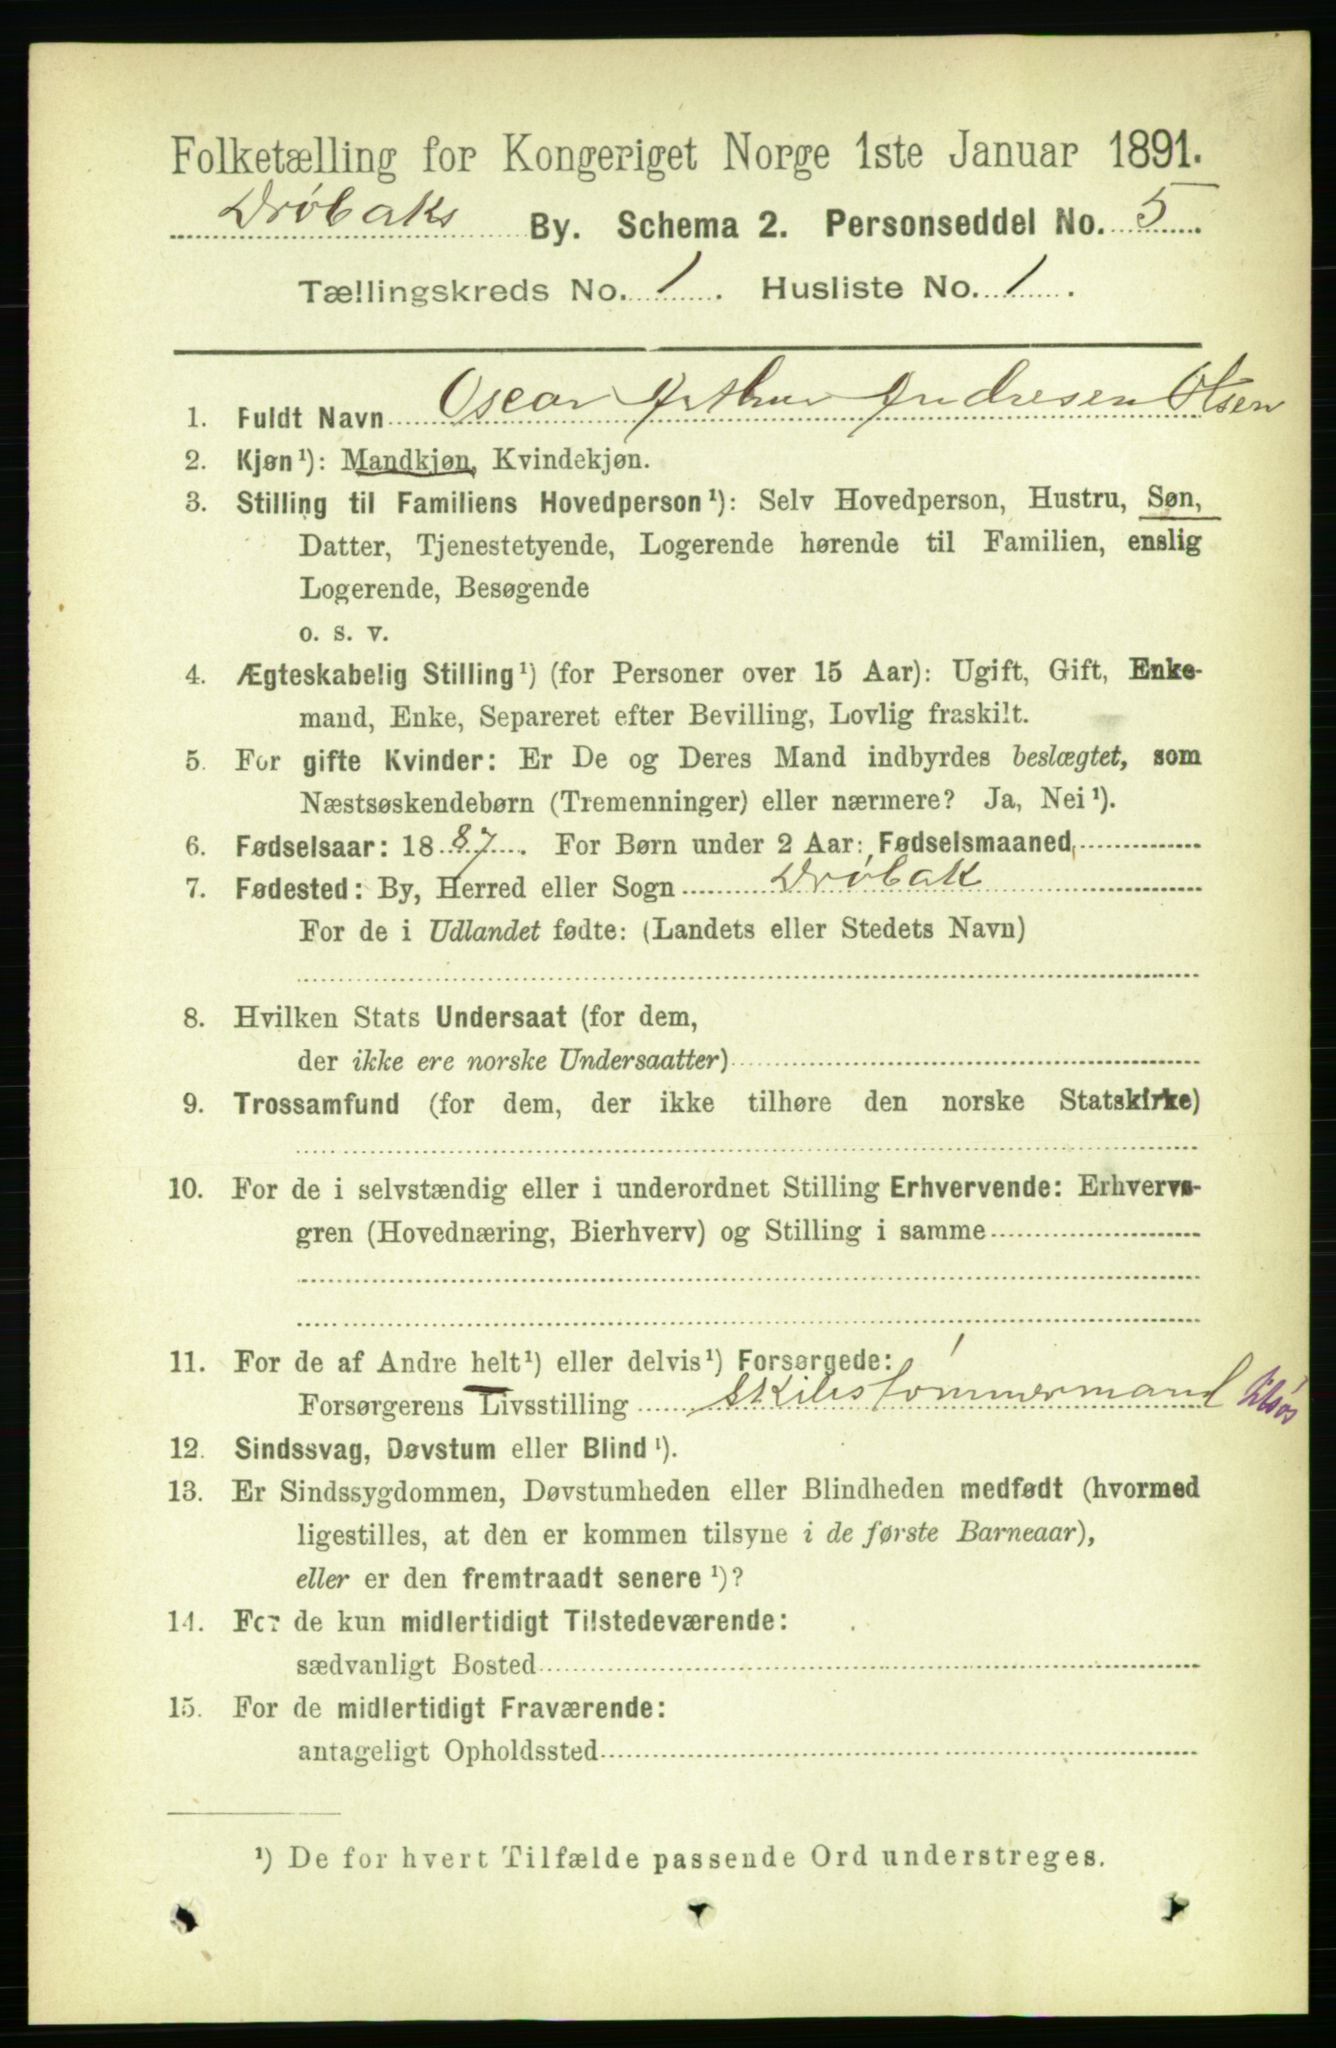 Folketælling for Kongeriget Norge 1ste Januar 1891.
Drøbaks By. Schema 2. Personseddel No. 5.
Tællingskreds No. 1. Husliste No. 1.
1. Fuldt Navn Oscar Arthur Andresen Olsen
2. Kjøn¹): Mandkjøn, Kvindekjøn.
3. Stilling til Familiens Hovedperson¹): Selv Hovedperson, Hustru, Søn,
Datter, Tjenestetyende, Logerende hørende til Familien, enslig
Logerende, Besøgende
o. s. v.
4. Ægteskabelig Stilling¹) (for Personer over 15 Aar): Ugift, Gift, Enke-
mand, Enke, Separeret efter Bevilling, Lovlig fraskilt.
5. For gifte Kvinder: Er De og Deres Mand indbyrdes beslægtet, som
Næstsøskendebørn (Tremenninger) eller nærmere? Ja, Nei¹).
6. Fødselsaar: 1887. For Børn under 2 Aar: Fødselsmaaned
7. Fødested: By, Herred eller Sogn Drøbak
For de i Udlandet fødte: (Landets eller Stedets Navn)
8. Hvilken Stats Undersaat (for dem,
der ikke ere norske Undersaatter)
9. Trossamfund (for dem, der ikke tilhøre den norske Statskirke)
10. For de i selvstændig eller i underordnet Stilling Erhvervende: Erhvervs-
gren (Hovednæring, Bierhverv) og Stilling i samme
11. For de af Andre helt¹) eller delvis¹) Forsørgede:
Forsørgerens Livsstilling Skibstømmermand tilsøs
12. Sindssvag, Døvstum eller Blind¹).
13. Er Sindssygdommen, Døvstumheden eller Blindheden medfødt (hvormed
ligestilles, at den er kommen tilsyne i de første Barneaar),
eller er den fremtraadt senere¹)?
14. For de kun midlertidigt Tilstedeværende:
sædvanligt Bosted
15. For de midlertidigt Fraværende:
antageligt Opholdssted
¹) De for hvert Tilfælde passende Ord understreges.